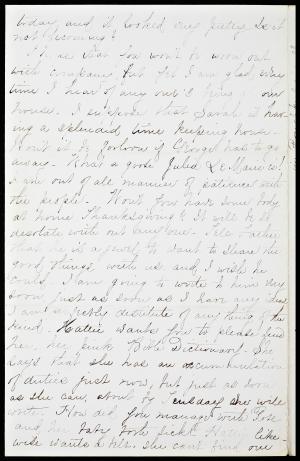 today and it looked very pretty. Is it
not becoming?
I'm so afraid you won't be worn out
with company but yet I am glad every
time I hear of any one's being
house. I suppose that Sarah is hav-
ing a splendid time keeping house.
Won't it be forlorn if George has to go
away. What a goose Julia De is!
I am out of all manner of patience with
the people. Won't you have some body
at home Thanksgiving? It will be so
desolate with out any one. Tell Father
that he is a jewel, to want to share the
good things with us and I wish he
could. I am going to write to him very
soon just as soon as I have any
I am utterly destitute of any thing of the
kind. Hattie wants you to please find
her, her Bible Dictionary. She
says that she has an accumulation
of duties just now, but just as soon
as she can, about by Tuesday she will
write. How did you manage with
and both sick? Hattie like-
wise wants a she can't find one